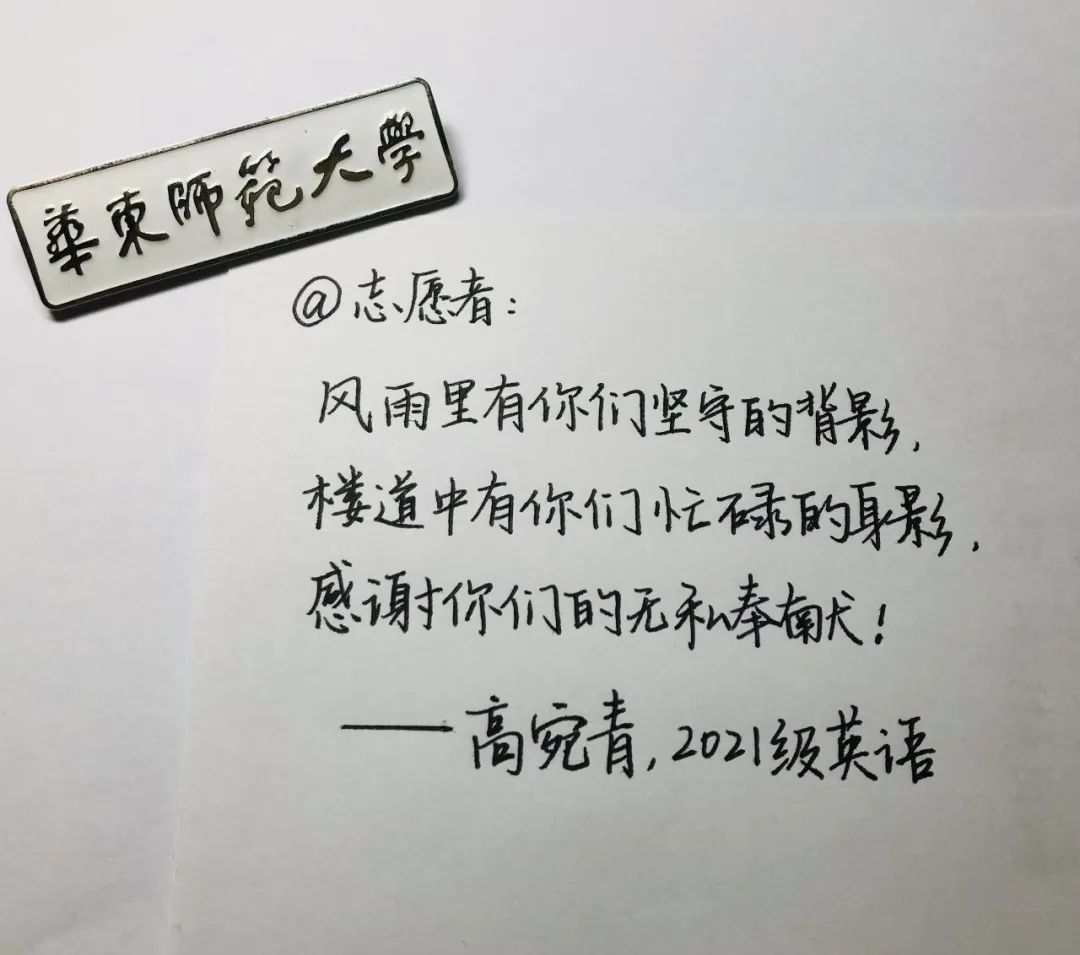 華東师范大學
@志愿者:
风雨里有你们坚守的背影,
楼道中有你们忙碌的身影,
感谢你们的无私奉献!
——高宛青,2021级英语